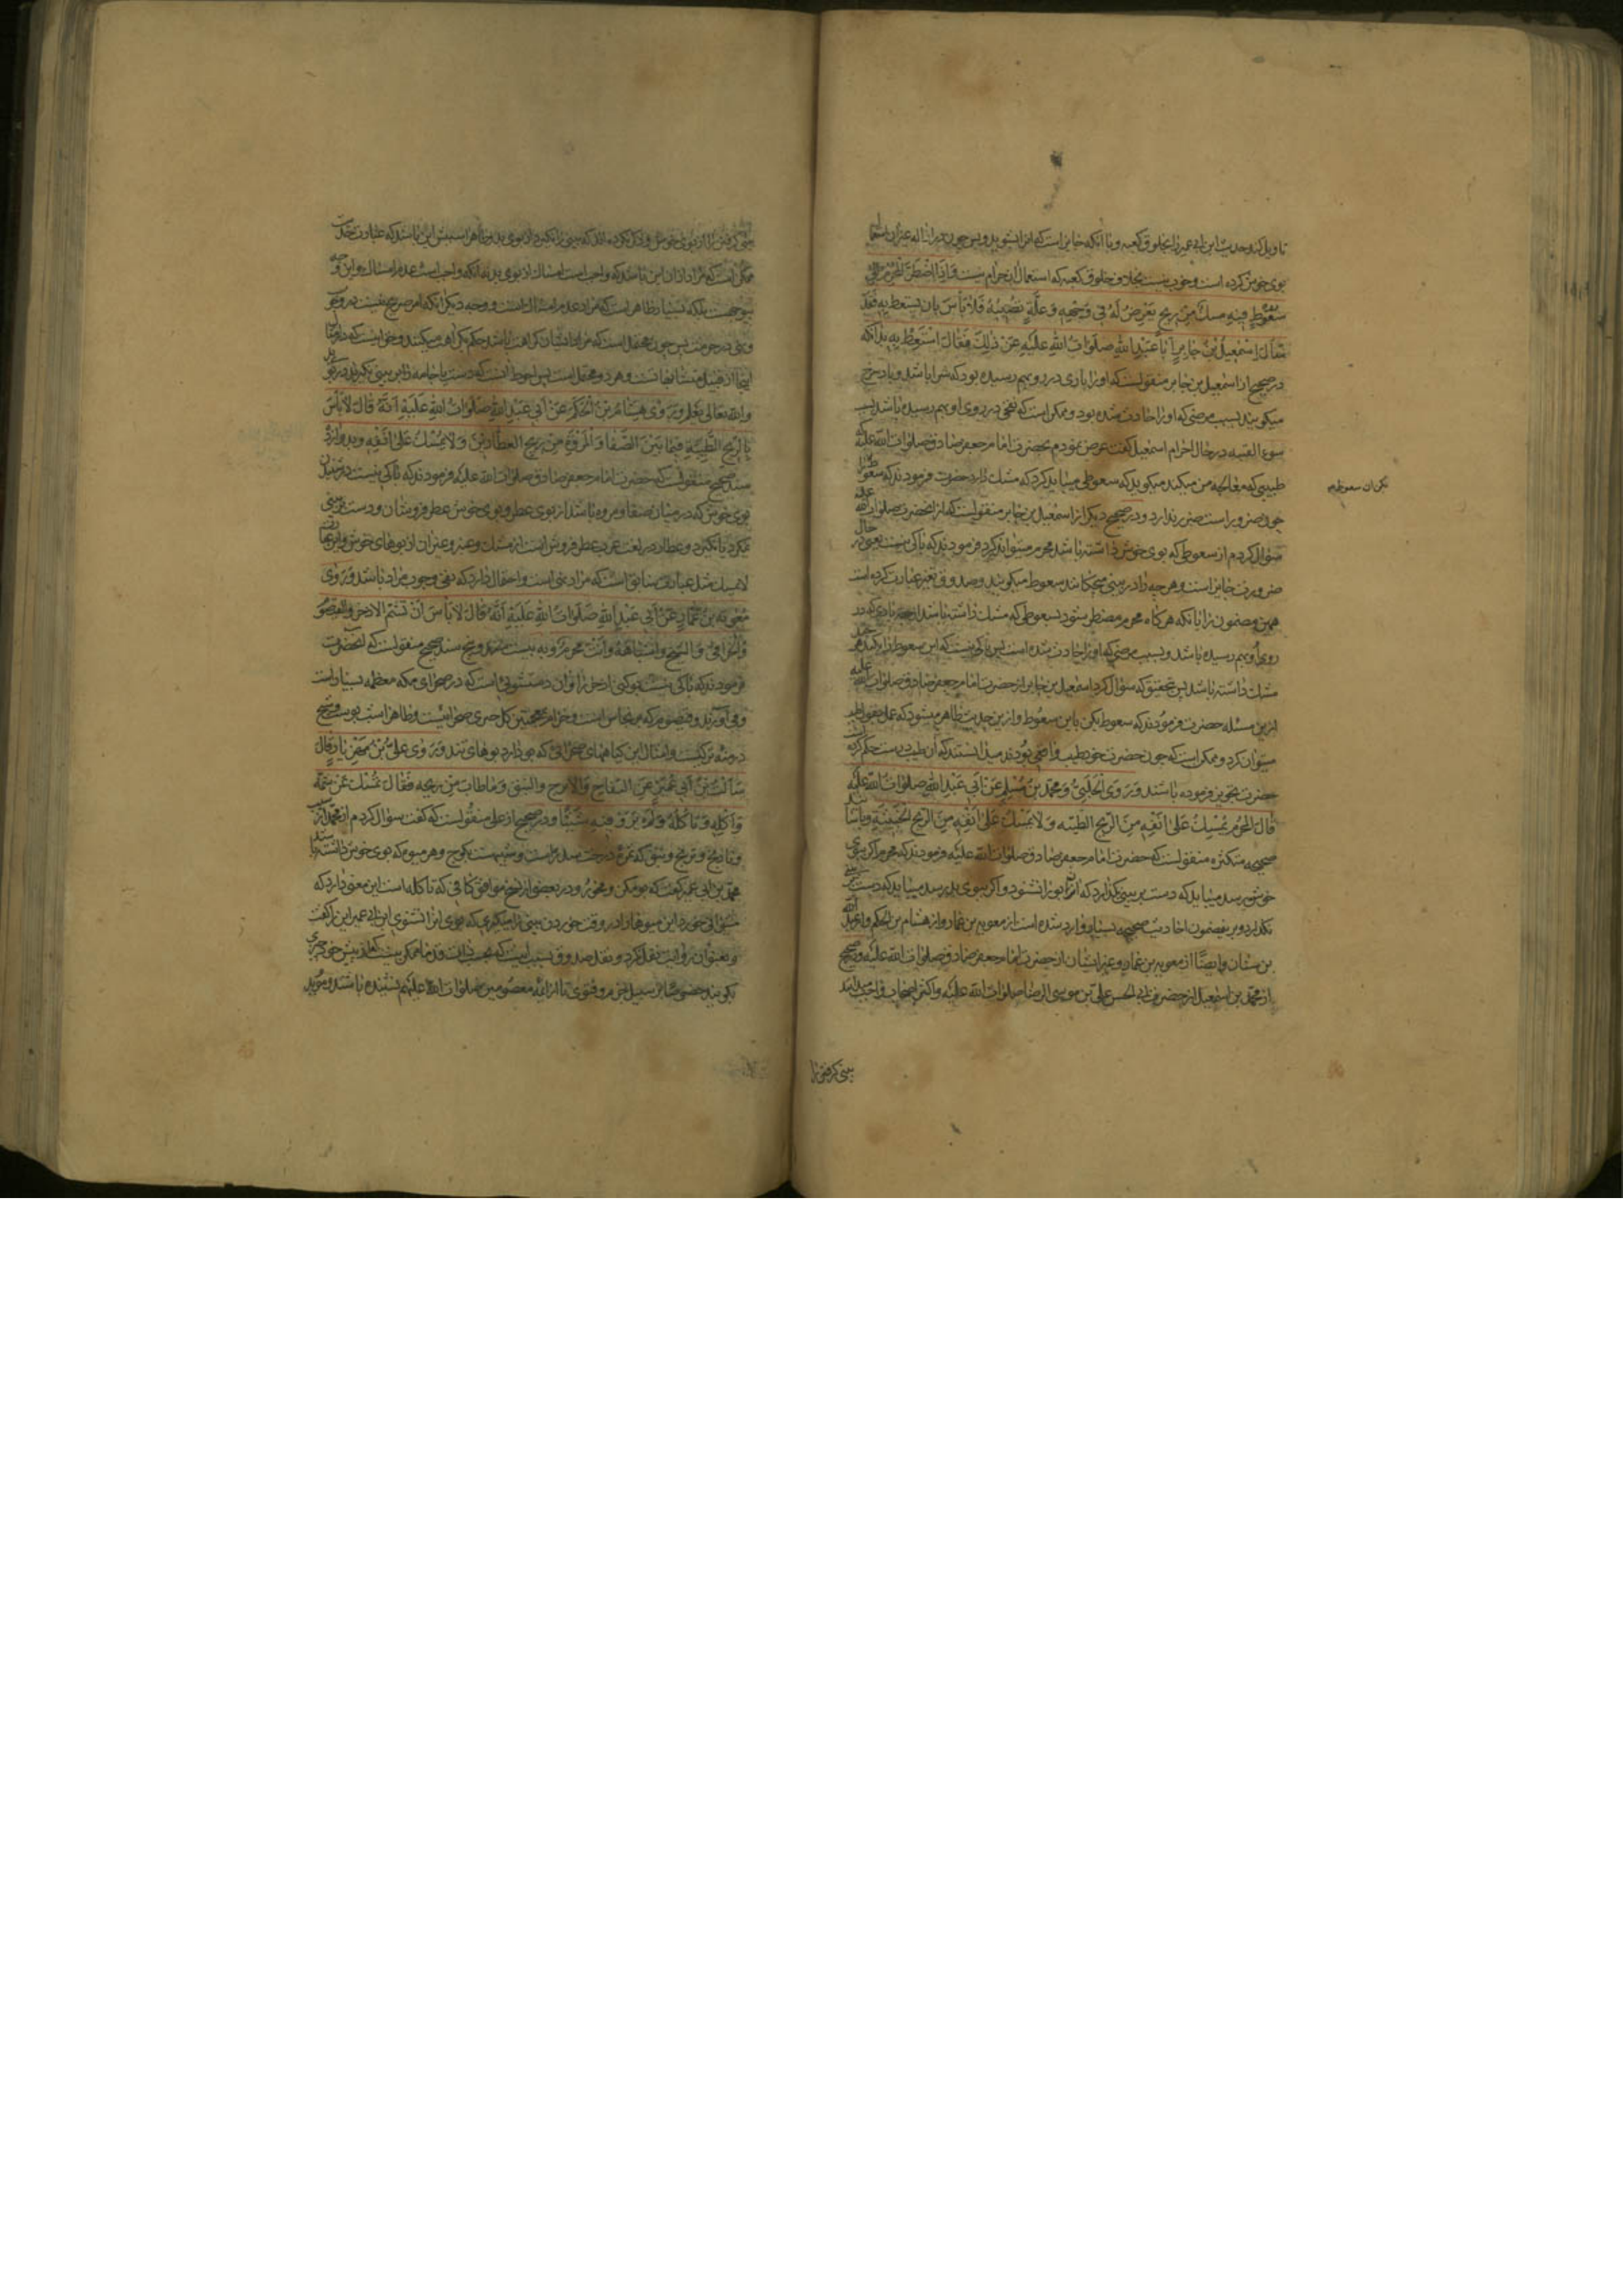 تاویل کند حدیث ابن ابی عمیر را بخلوق کعبه و با آنکه جایز است که انرا نشوید و پس چون
بوی خوش کرده است و خوب نیست بخلاف خلوق کعبه که استعمال ان حرام نیست وَاِذَا اضْطُرَّ الْمُحْرِمُ اِلی
سَعُوطٍ فیهِ مِسْكٌ مِنْ رِیحٍ یَعْرِضُ لَهُ فی وَجْهِهِ وَعِلَّةٍ تُصیبُهُ فَلا بَأْسَ بِاَنْ یَسْتَعِطَ بِهِ فَقَدْ
سَأَلَ اِسْمعیلُ بْنُ جابِرٍ اَبا عَبْدِ اللهِ صَلَواتُ اللهِ عَلَیْهِ عَنْ ذلِكَ فَقالَ اسْتَعِطْ بِهِ بدانکه
در صحیح از اسمعیل بن جابر منقولست که او را بادی در رو بهم رسیده بود که شرا باشد و باد سرخ
میکویند بسبب مرضی که او را حادث شده بود و ممکن است که نفخی در روی او بهم رسیده باشد بسبب
سوء القنیه در حال احرام اسمعیل کفت عرض نمودم بحضرت امام جعفر صادق صلوات الله علیه که
طبیبی که معالجه من میکند میکوید که سعوطی میباید کرد که مشك دارد حضرت فرمودند که سعوط
بکن ان سعوط را
چون ضرور است ضرر ندارد و در صحیح دیکر از اسمعیل بن جابر منقولست که از انحضرت صلوات الله علیه
سؤال کردم از سعوطی که بوی خوش داشته باشد محرم میتواند کرد فرمودند که باکی نیست یعنی در حال
ضرورت جایز است و هر چه را در بینی میچکانند سعوط میکویند و صدوق تغییر عبارت کرده است
همین مضمون را با آنکه هر کاه محرم مضطر شود بسعوطی که مشك داشته باشد از جهة بادی که در
روی او بهم رسیده باشد و بسبب مرضی که او را حادث شده است پس باکی نیست که این سعوط را بکند هر چند
مشك داشته باشد پس بتحقیق که سؤال کرد اسمعیل بن جابر از حضرت امام جعفر صادق صلوات الله علیه
ازین مسئله حضرت فرمودند که سعوط بکن باین سعوط و ازین حدیث ظاهر میشود که عمل بقول طبیب
میتوان کرد و ممکن است که چون حضرت خود طبیب واقعی بودند میدانستند که ان طبیب درست حکم کرده است
حضرت تجویز فرموده باشند وَرَوَی الْحَلَبِیُّ وَمُحَمَّدُ بْنُ مُسْلِمٍ عَنْ اَبی عَبْدِ اللهِ صَلَواتُ اللهِ عَلَیْهِ
قالَ الْمُحْرِمُ یُمْسِكُ عَلی اَنْفِهِ مِنَ الرّیحِ الطَّیِّبَةِ وَلا یُمْسِكُ عَلی اَنْفِهِ مِنَ الرّیحِ الْخَبیثَةِ و باسانید
صحیحه متکثره منقولست که حضرت امام جعفر صادق صلوات الله علیه فرمودند که محرم اکر ببوی
خوش رسد میباید که دست بر بینی کذارد که ان بو را نشنود و اکر ببوی بد رسد میباید که دست
نکذارد و بر این مضمون احادیث صحیحه بسیار وارد شده است از معویه بن عمار و از هشام بن الحکم و از عبد الله
بن سنان و ایضًا از معویه بن عمار و غیر ایشان از حضرت امام جعفر صادق صلوات الله علیه و در صحیح
از محمد بن اسمعیل از حضرت ابی الحسن علی بن موسی الرضا صلوات الله علیه و اکثر اصحاب
بینی کرفتن را
بینی کرفتن را از بوی خوش و ذکر نکرده اند که بینی را نکیرد از بوی بد و ظاهرا سببش این باشد که عبارت حدیث
ممکن است که مراد از ان این باشد که واجب است امساك از بوی بد نه آنکه واجب است عدم امساك و این وجه
بی وجهست بلکه بسیار ظاهر است که مراد عدم امساك است و وجه دیکر آنکه امر صریح نیست در وجوب
و نهی در حرمت پس چون محتمل است که مراد ایشان کراهت باشد حکم بکراهت میکنند و حق اینست که
اینجا از قبیل متشابهاتست و هر دو محتمل است پس احوط انست که دست یا جامه را بر بینی نکیرند در بوی بد
والله تعالی یعلم وَرَوی هِشامُ بْنُ الْحَکَمِ عَنْ اَبی عَبْدِ اللهِ صَلَواتُ اللهِ عَلَیْهِ اَنَّهُ قالَ لا بَأْسَ
بِالرّیحِ الطَّیِّبَةِ فیما بَیْنَ الصَّفا وَالْمَرْوَةِ مِنْ ریحِ الْعَطّارینَ وَلا یُمْسِكُ عَلی اَنْفِهِ و بدوازده
سند صحیح منقولست که حضرت امام جعفر صادق صلوات الله علیه فرمودند که باکی نیست در شنیدن
بوی خوش که در میان صفا و مروه باشد از بوی عطر و بوی خوش عطر فروشان و دست بر بینی
نکیرد یا نکیرد و عطار در لغت عرب عطر فروش است از مشك و عنبر و غیر ان از بوهای خوش و
لا یمسك مثل عبارت سابق است که مراد نهی است و احتمال دارد که نفی وجوب مراد باشد وَرَوی
مُعویَةُ بْنُ عَمّارٍ عَنْ اَبی عَبْدِ اللهِ صَلَواتُ اللهِ عَلَیْهِ اَنَّهُ قالَ لا بَأْسَ اَنْ تَشَمَّ الْاِذْخِرَ وَالْقَیْصُومَ
وَالْخُزامی وَالشّیحَ وَاَشْباهَهُ وَاَنْتَ مُحْرِمٌ و به بیست سند و پنج سند صحیح منقولست که انحضرت
فرمودند که باکی نیست بو کنی اذخر را و ان دشتبوئی است که در صحرای مکه معظمه بسیار است
و می آورند و قیصوم که برنجاس است و خزامی همچنین کل خیری صحرائیست و ظاهرا شب بو است و شیح
درمنه ترکیست و امثال این کیاههای صحرائی که بو دارد بوهای تند وَرَوی عَلِیُّ بْنُ مَهْزِیارَ قالَ
سَأَلْتُ بْنَ اَبی عُمَیْرٍ عَنِ التُّفّاحِ وَالْاُتْرُجِ وَالنَّبِقِ وَما طابَ مِنْ ریحِهِ فَقالَ تُمْسِكُ عَنْ شَمِّهِ
وَاَکْلِهِ وَتَأْکُلُهُ وَلَمْ یَرْوِ فیهِ شَیْئًا و در صحیح از علی منقولست که کفت سؤال کردم از محمد از سیب
و نارنج و ترنج و نبق که ثمرهٔ درخت سدر است و شبیهست بکوج و هر میوه که بوی خوش داشته باشد
محمد بن ابی عمیر کفت که بو مکن و مخور و در بعضی از نسخ موافق کافی که تاکله است این معنی دارد که
میتوانی خورد این میوها را و در وقت خوردن بینی را میکیری که بوی انرا نشنوی ابن ابی عمیر این را کفت
و بعنوان روایت نقل نکرد و نقل صدوق بسبب اینست که میدانست قدما ممکن نیست که از پیش خود چیزی
بکویند خصوصًا بر سبیل جزم و فتوی تا از ائمه معصومین صلوات الله علیهم نشنیده باشند و مؤید